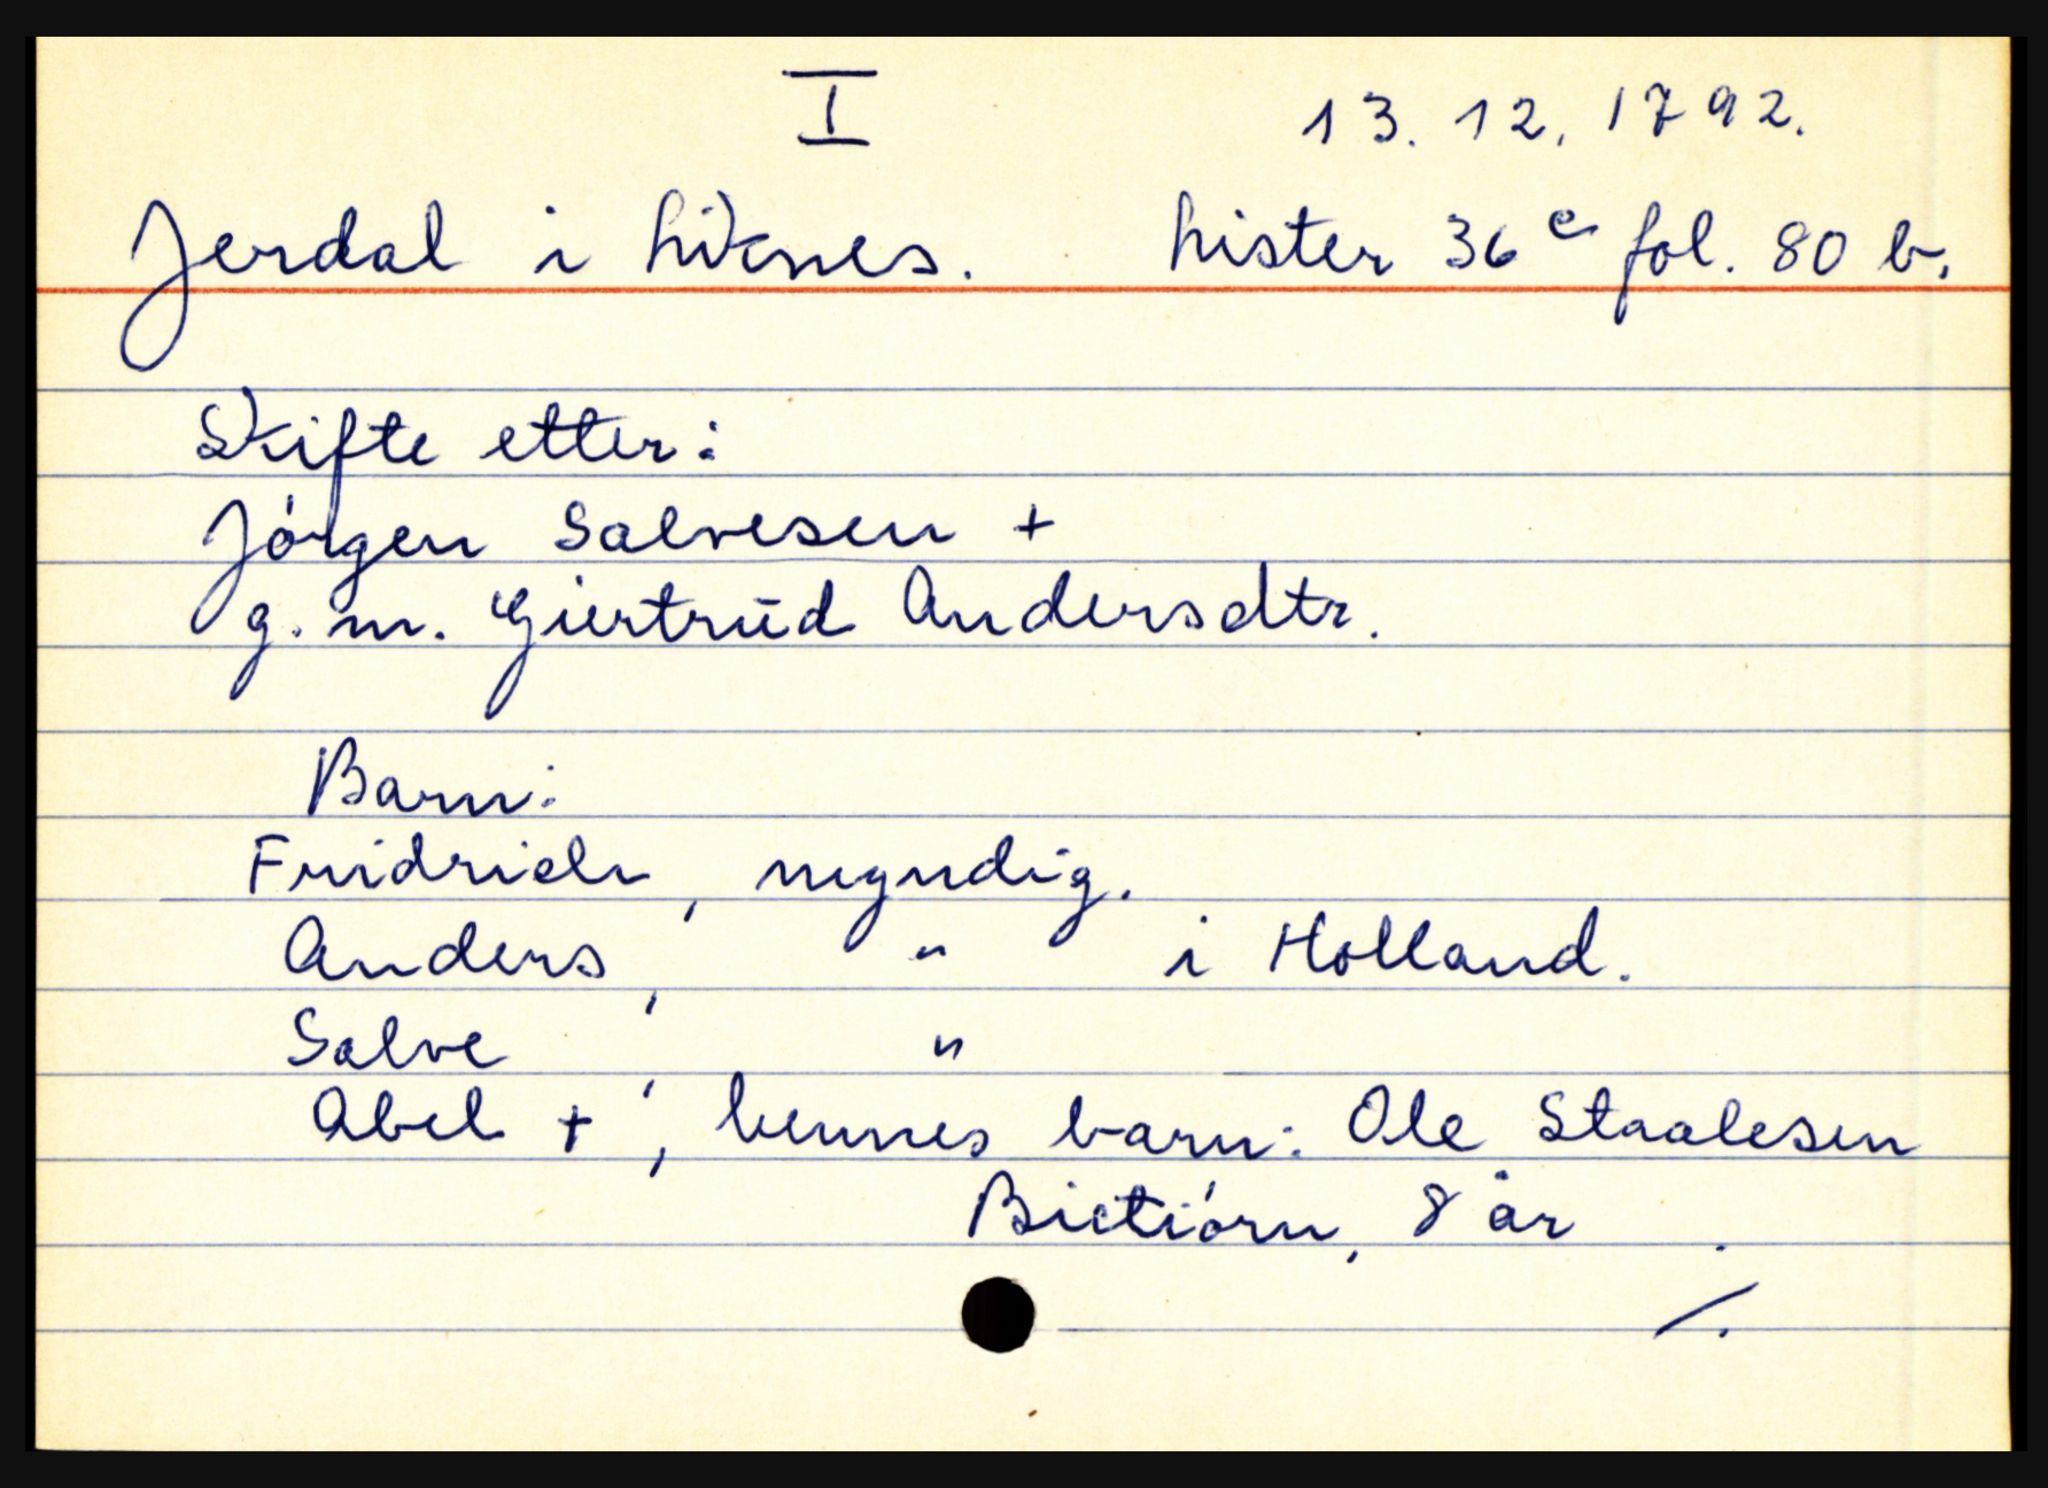 I 13. 12. 1792.
Jerdal i Liknes. Lister 36 c fol. 80 b.
Skifte etter:
Jórgen Salvesen +
g. m. Giertrūd Andersdtr.
Barn:
Fridrich, myndig.
Anders, " i Holland.
Salve, "
Abel +, hennes barn: Ole Staalesen
Bietiórn, 8 år